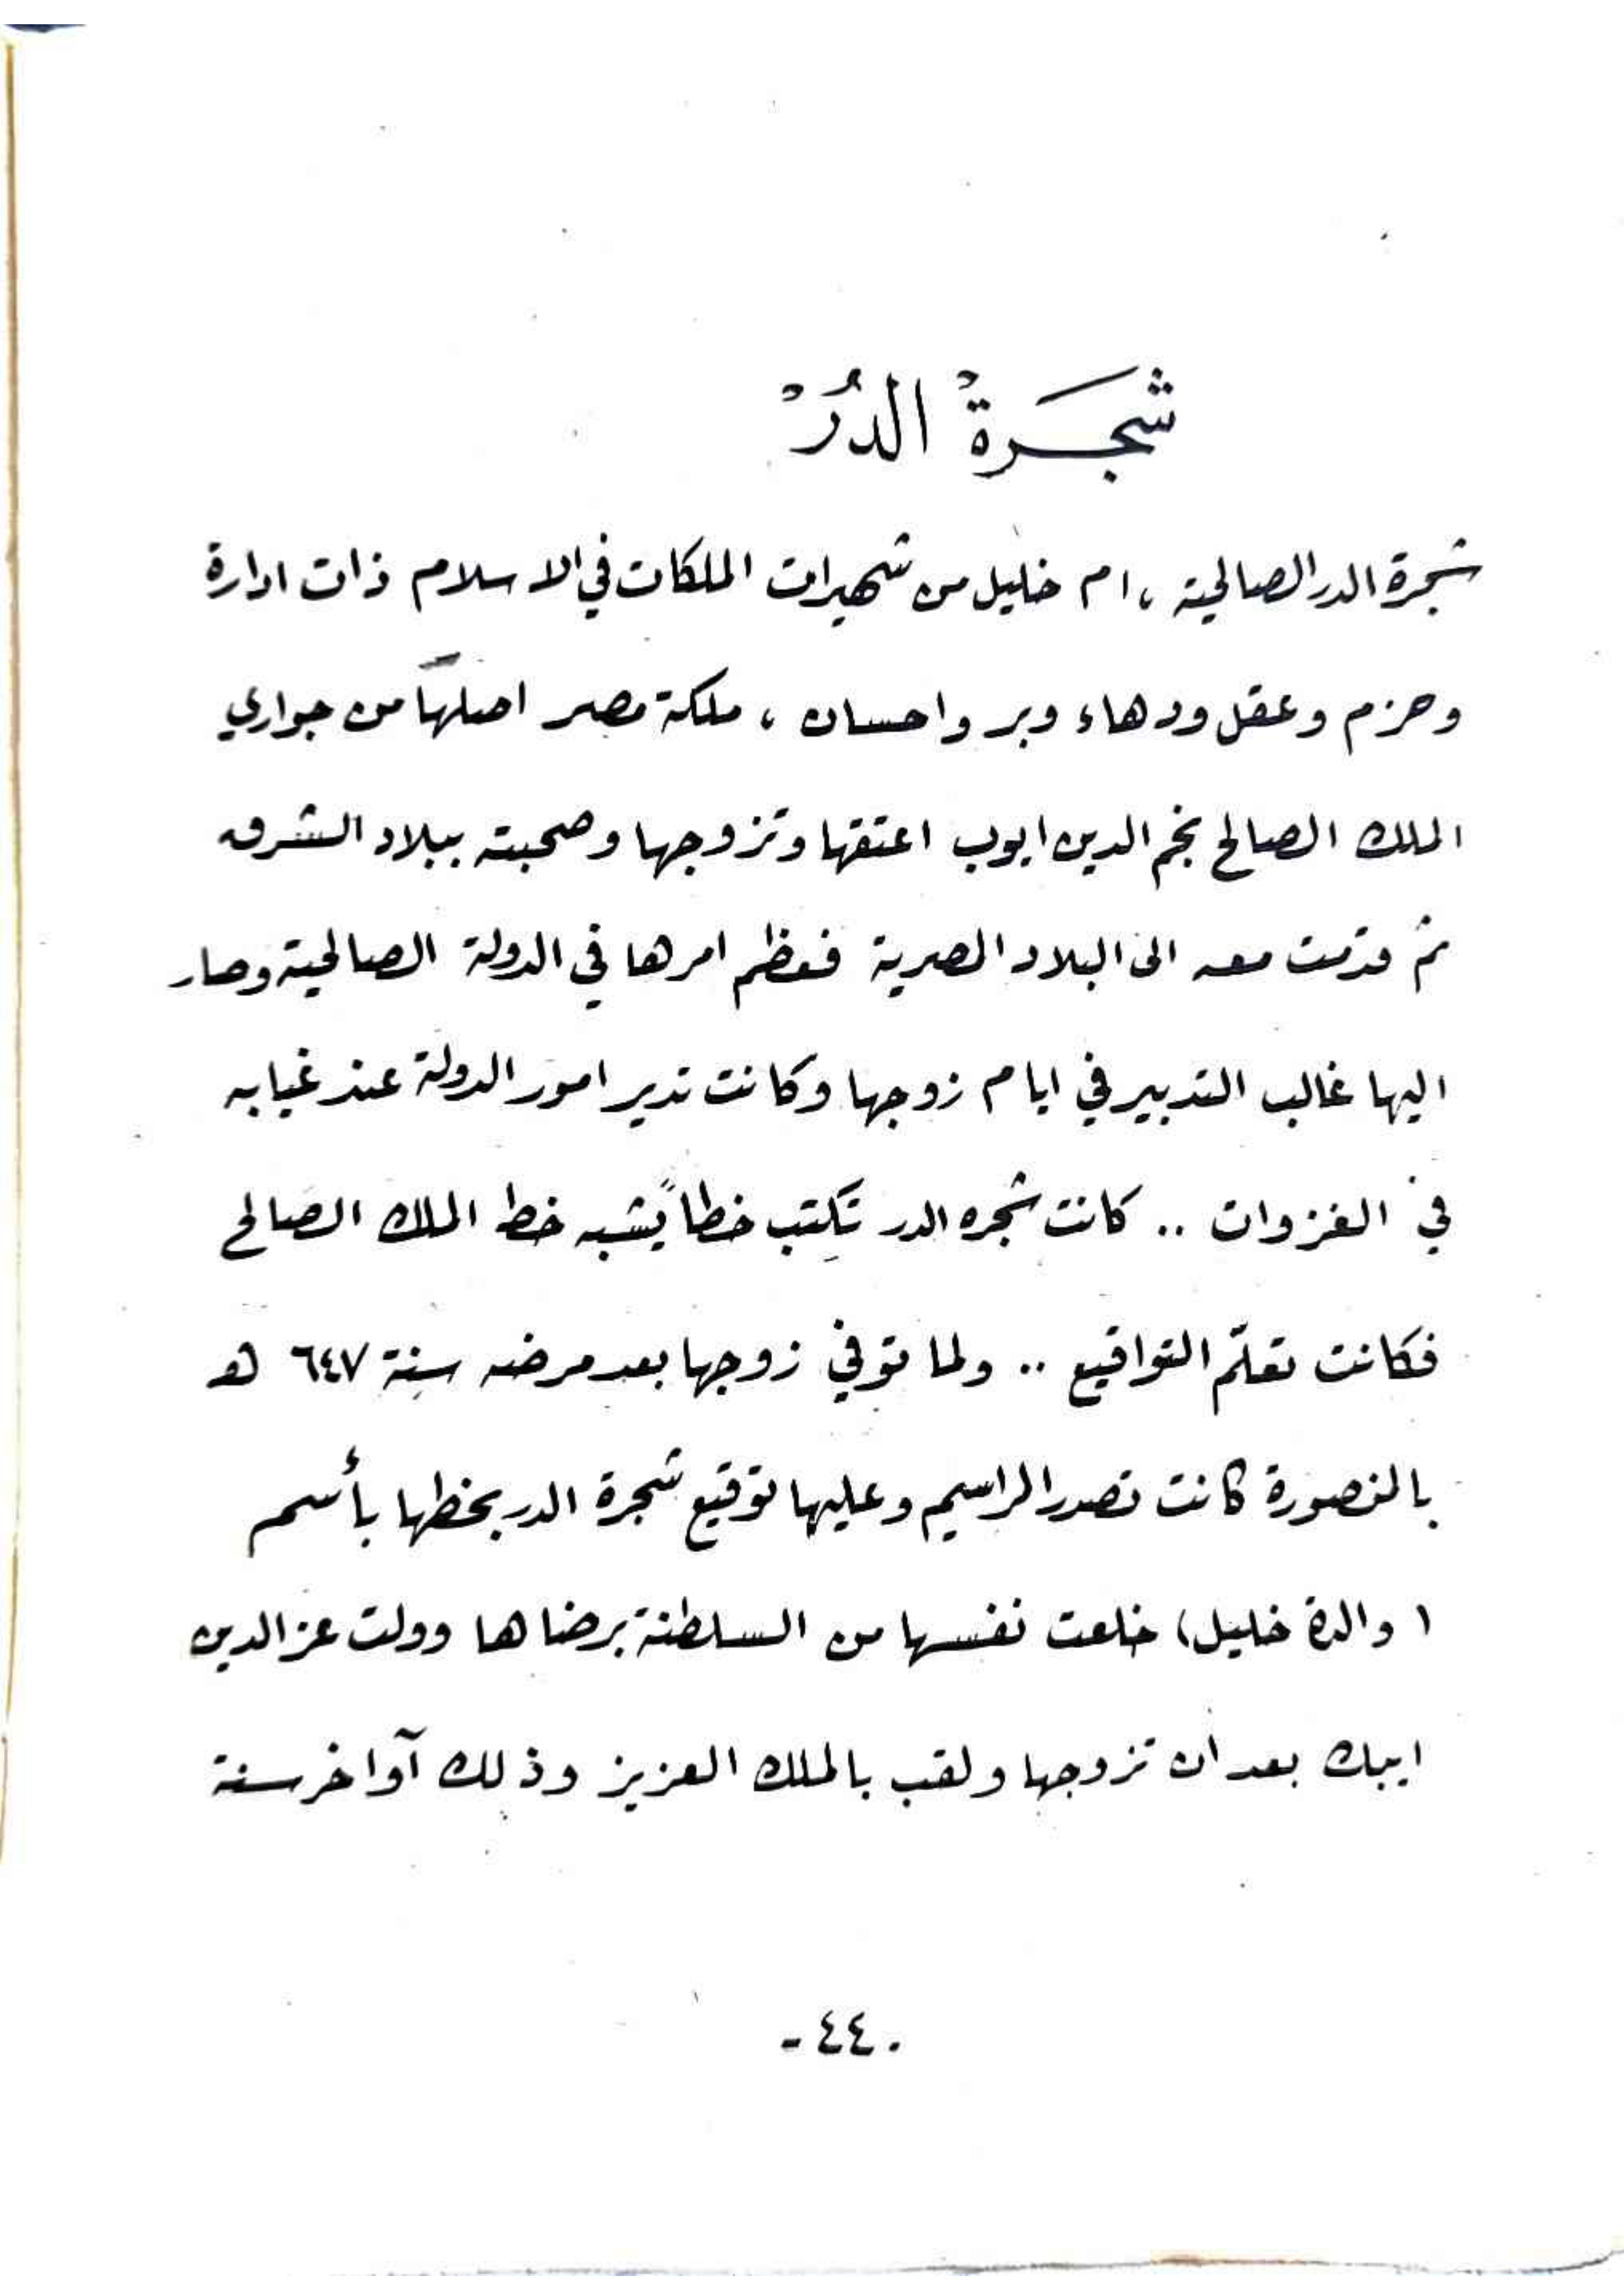 شجَرةْ الدُرْ
شجرة الدر الصالحية ، ام خليل من شهيرات الملكات في الاسلام ذات ادارة
وحزم وعقل ودهاء وبر واحسان ، ملكة مصر اصلها من جواري
الملك الصالح نجم الدين ايوب اعتقها وتزوجها وصحبته ببلاد الشرق
ثم قدمت معه الى البلاد المصرية فعظم امرها في الدولة الصالحية وصار
اليها غالب التدبير في ايام زوجها وكانت تدير امور الدولة عند غيابه
في الغزوات .. كانت شجره الدر تكتب خطاً يشبه خط الملك الصالح
فكانت تعلّم التواقيع .. ولما توفي زوجها بعد مرضه سنة ٦٤٧ هـ
بالمنصورة كانت تصدر المراسيم وعليها توقيع شجرة الدر بخطها بأسم
( والدة خليل) خلعت نفسها من السلطنة برضاها وولت عز الدين
ايبك بعد ان تزوجها ولقب بالملك العزيز وذلك آواخر سنة
- ٤٤ -